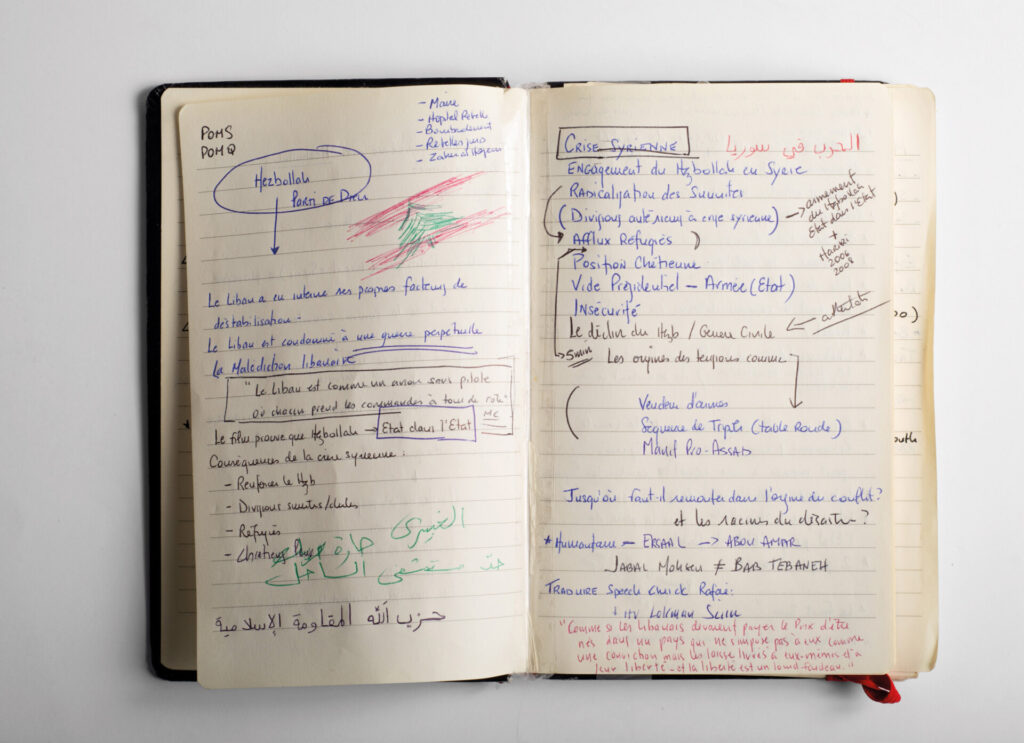 POMS
POM Q
- Maire
- Hôpital Rebelle
- Bombardement
- Rebelles
Hezbollah
PARTI DE DIEU
Le Liban a en interne ses propres facteurs de
déstabilisation -
Le Liban est condamné à une guerre perpétuelle
la Malédiction libanaise
"Le Liban est comme un avion sans pilote
où chacun prend les commandes à tour de rôle"
MC
Le film prouve que Hezbollah → Etat dans l'Etat
Conséquences de la crise syrienne :
- Renforcer le Hzb
- Divisions sunnites/chiites
- Réfugiés
- Chrétiens
حارة
حدّ مستشفى الساحل
حزب الله المقاومة الإسلامية
CRISE SYRIENNE
الحرب في سوريا
ENGAGEMENT du Hzbollah en Syrie
RADICALISATION des Sunnites
(Divisions antérieures à crise syrienne) → armement
du Hezbollah
Etat dans l'Etat
+
Hariri
2006
2008
Afflux Réfugiés)
Position Chrétienne
Vide Présidentiel - Armée (Etat)
Insécurité
Le déclin du Hzb / Guerre Civile ← attentats
5min
Les origines des tensions comme:
Vendeur d'armes
Séquence de Tripoli (table Ronde)
Manif Pro-Assad
Jusqu'où faut-il remonter dans l'origine du conflit?
et les racines du désastre?
* Humanitaire - ERSAAL → ABOU AMAR
JABAL MOHSEN ≠ BAB TEBANEH
TRADUIRE Speech Cheick Rafaï:
+ ITV LOKMAN SLIM
"Comme si les Libanais devaient payer le Prix d'être
nés dans un pays qui ne s'impose pas à eux comme
une conviction mais les laisse livrés à eux-mêmes et à
leur liberté - et la liberté est un lourd fardeau."
oo.)
outh